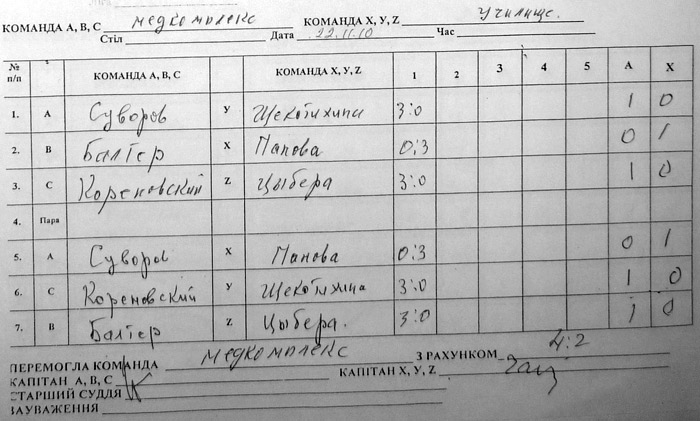 КОМАНДА А, В, С Медкомплекс КОМАНДА Х, У, Z Училище.
Стіл Дата 22.11.10 Час
№ п/п КОМАНДА А, В, С КОМАНДА Х, У, Z 1 2 3 4 5 А Х
1. А Суворов У Щекотихина 3:0 1 0
2. В Балтер Х Панова 0:3 0 1
3. С Кореновский Z Цыбера 3:0 1 0
4. Пара
5. А Суворов Х Панова 0:3 0 1
6. С Кореновский У Щекотихина 3:0 1 0
7. В Балтер Z Цыбера. 3:0 1 0
ПЕРЕМОГЛА КОМАНДА Медкомплекс З РАХУНКОМ 4:2
КАПІТАН А, В, С КАПІТАН Х, У, Z
СТАРШИЙ СУДДЯ
ЗАУВАЖЕННЯ